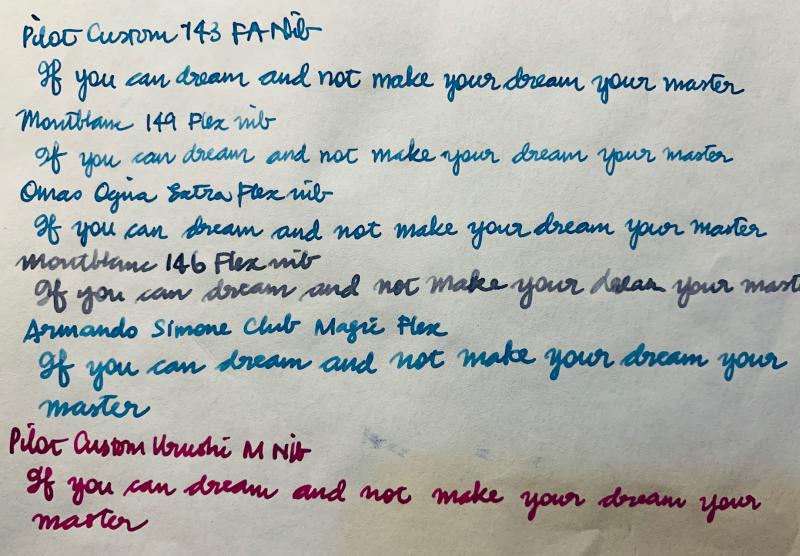 Pilot Custom 743 FA Nib
If you can dream and not make your dream your master
Montblanc 149 Flex nib
If you can dream and not make your dream your master
Omas Ogiva Extra Flex nib
If you can dream and not make your dream your master
Montblanc 146 Flex nib
If you can dream and not make your dream your mast
Armando Simone Club Magic Flex
If you can dream and not make your dream your
master
Pilot Custom Urushi M Nib
If you can dream and not make your dream your
master